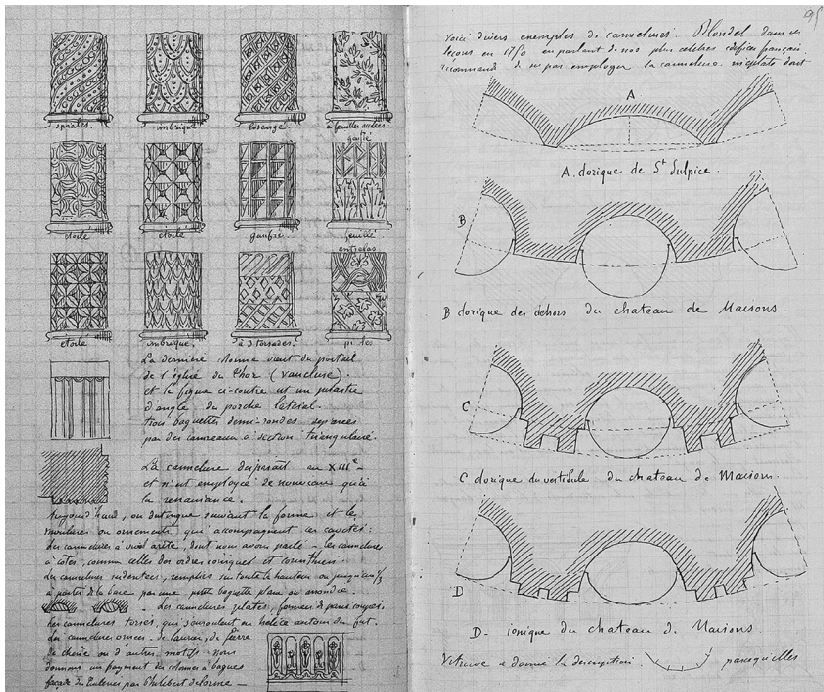 spirales
imbriqué
losange
à feuilles
gaufré
étoilé
étoilé
gaufré
feuillé
entrelas
étoilé
imbriqué.
à 3 torsades.
La dernière colonne vient du portail
de l'église du Thor (Vaucluse).
et la figure ci-contre est un pilastre
d'angle du porche lateral.
trois baguettes demi-rondes séparées
par des lanneaux à section triangulaire.
La cannelure disparait au XIIIe
et n'est employée de nouveau qu'à
la renaissance.
Aujourd'hui, on distingue suivant la forme et les
moulures ou ornements qui accompagnent ces cavités:
Les cannelures à vive arête, dont nous avons parlé - les cannelures
à côtes, comme celles des ordres ionique et corinthien.
Les cannelures rudentées, remplies sur toute la hauteur ou jusqu'au 1/3
à partir de la base par une petite baguette plane ou arrondie.
- Les cannelures plates, formées de pans coupés.
Les cannelures torses, qui s'enroulent en hélice autour du fut.
Les cannelures ornées - de laurier, de lierre
de chêne ou d'autres motifs - nous
donnons un fragment des colonnes à bagues
façade des Tuileries par Philibert Delorme -
95
Voici divers exemples de cannelures. Blondel dans ses
leçons en 1750 en parlant de nos plus célèbres édifices français.
recommande de ne pas employer la cannelure méplate dont
A
A. dorique de St Sulpice.
B
B dorique des dehors du chateau de Maisons
C
C dorique du vestibule du chateau de Maisons.
D
D- ionique du chateau de Maisons.
Vitruve a donné la description. parcequ'elles